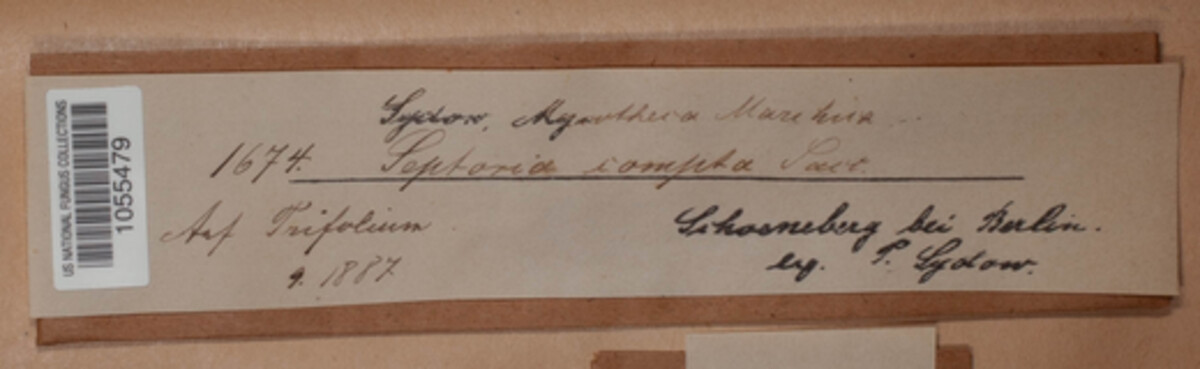 US NATIONAL FUNGUS COLLECTIONS
1055479
Sydow, Mycotheca Marchica
1674. Septoria compta Sacc.
Auf Trifolium
9. 1887
Schoeneberg bei Berlin.
leg. P. Sydow.